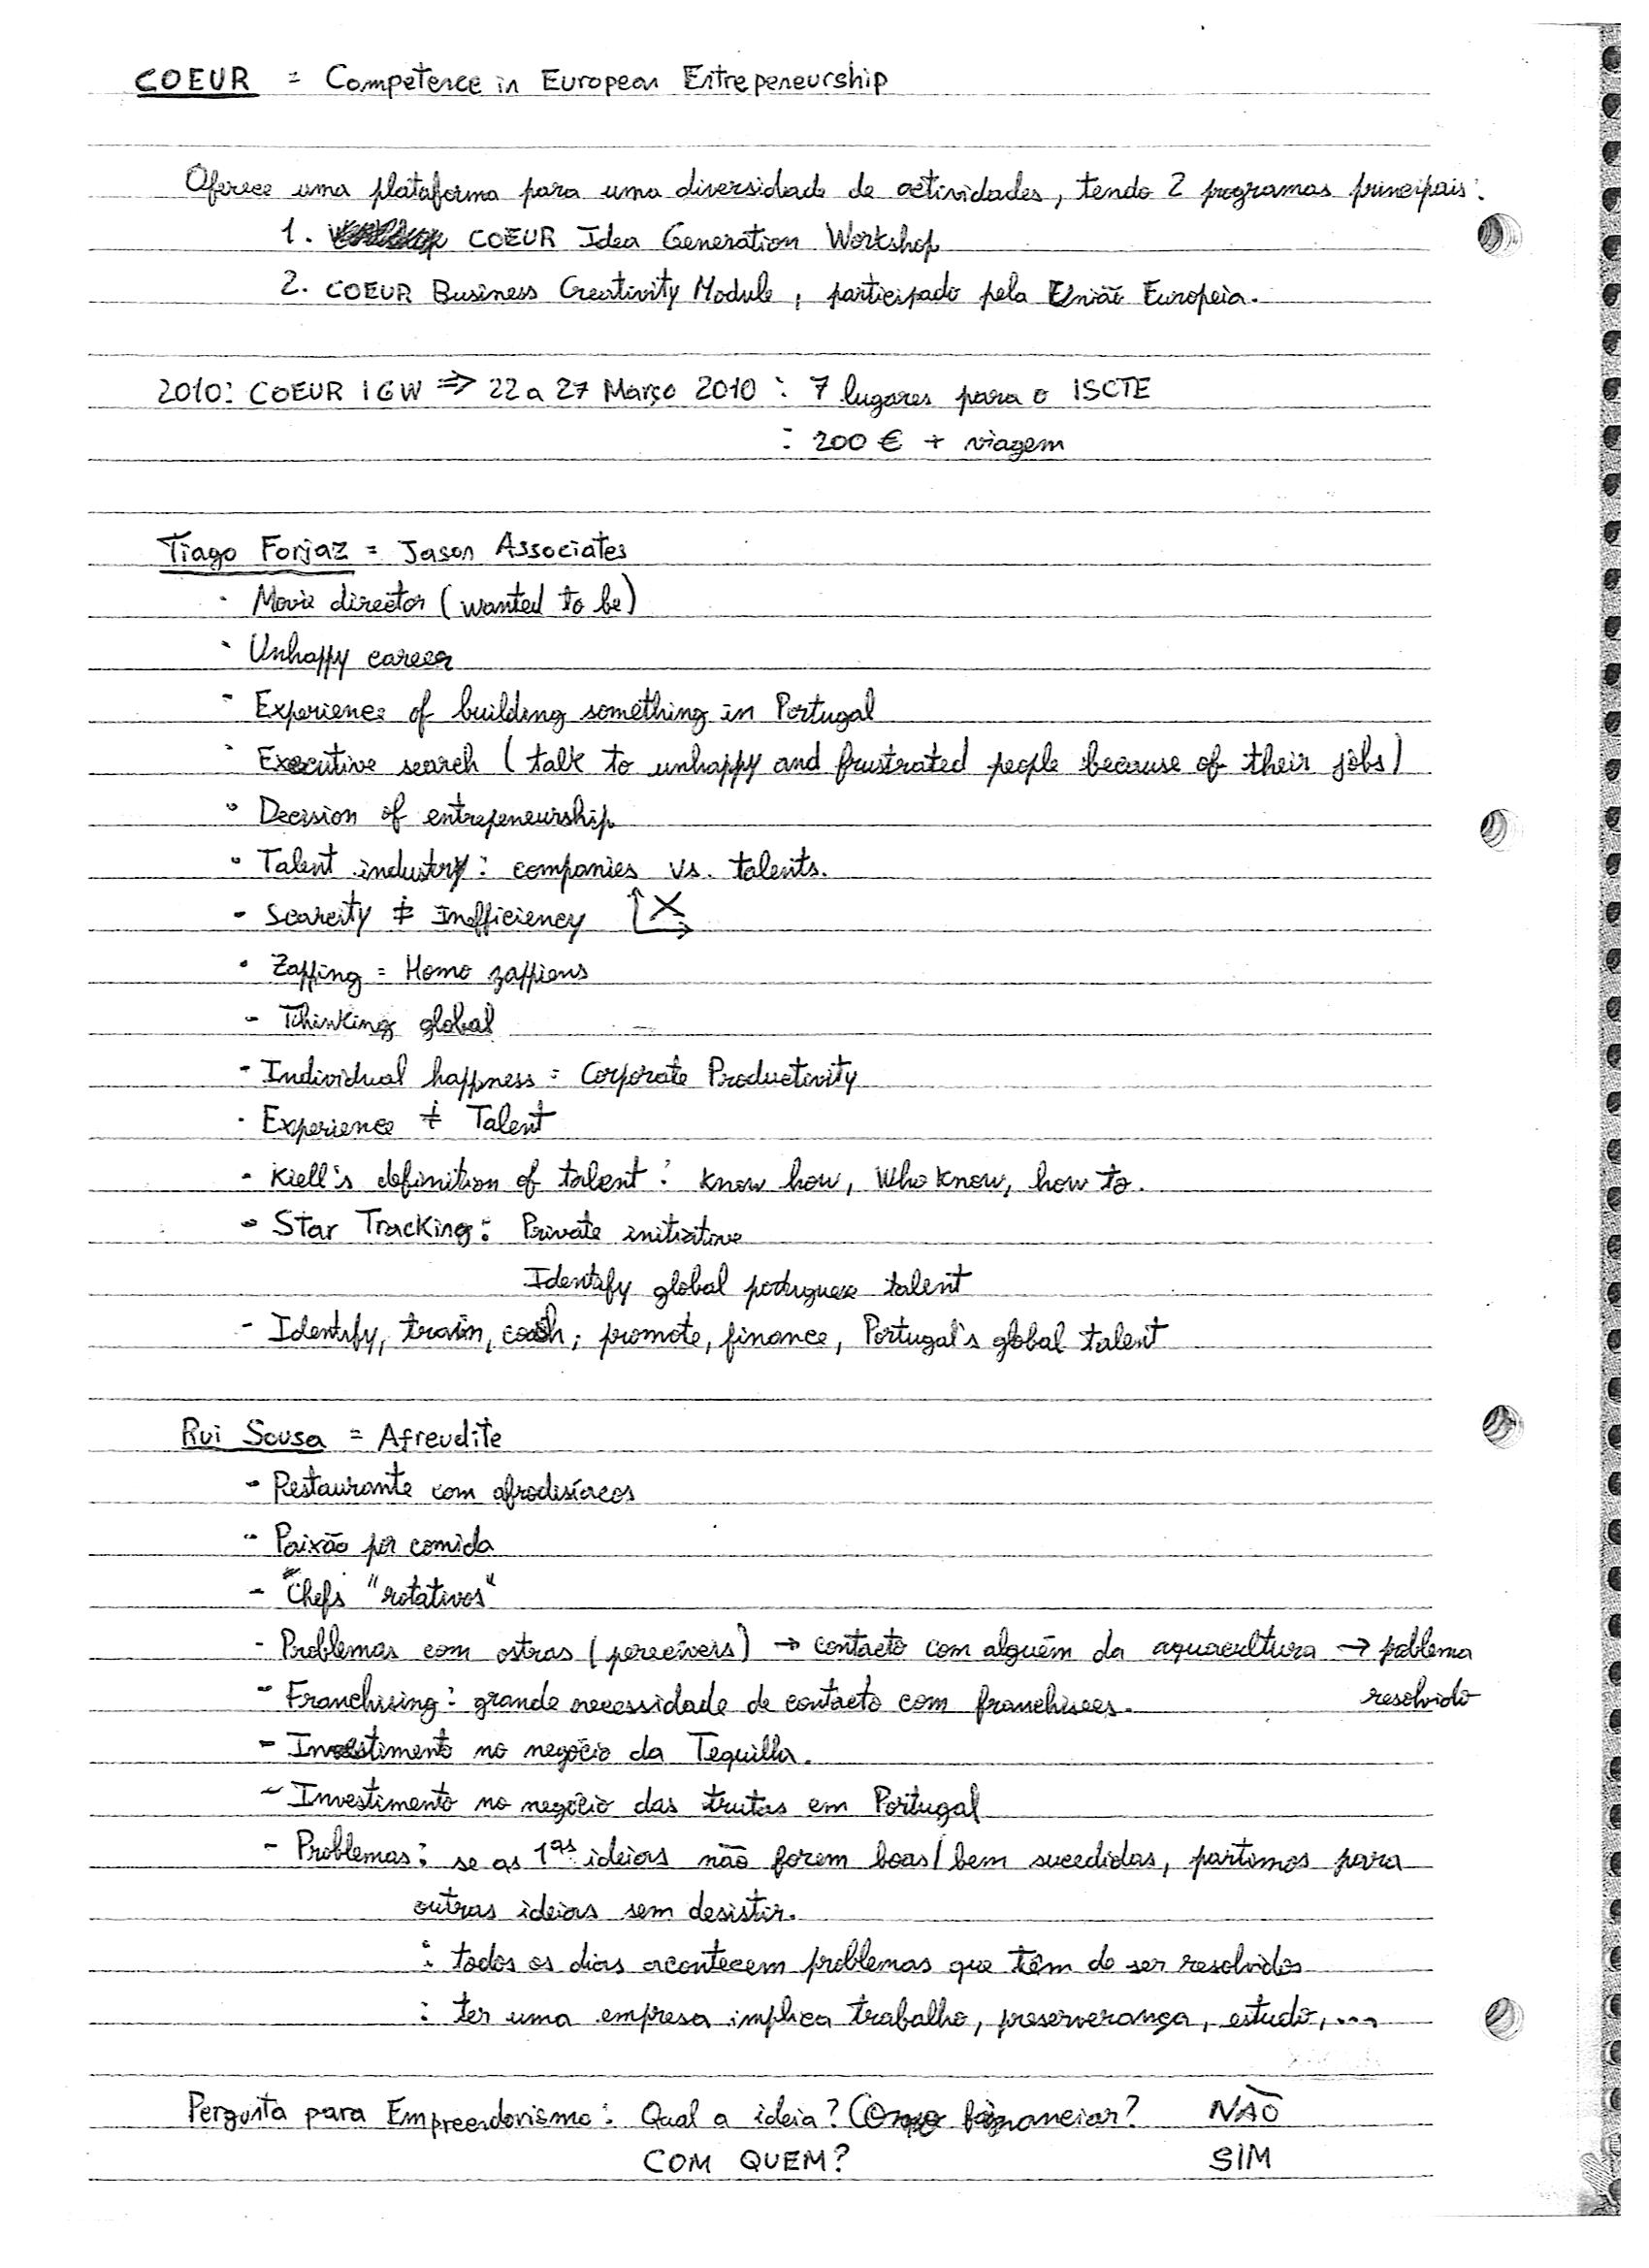 COEUR = Competence in European Entrepeneurship
Oferece uma plataforma para uma diversidade de actividades, tendo 2 programas principais:
1. COEUR Idea Generation Workshop
2. COEUR Business Creativity Module, participado pela União Europeia.
2010: COEUR IGW ⇒ 22 a 27 Março 2010 : 7 lugares para o ISCTE
: 200 € + viagem
Tiago Forjaz = Jason Associates
· Movie director (wanted to be)
· Unhappy career
- Experience of building something in Portugal
· Executive search (talk to unhappy and frustrated people because of their jobs)
· Decision of entrepeneurship
· Talent industry: companies vs. talents.
- Scarcity ≠ Inefficiency
· Zapping = Homo zappiens
- Thinking global
- Individual happness = Corporate Productivity
· Experience ≠ Talent
- Kiell's definition of talent: Know how, Who know, how to.
- Star Tracking: Private initiative
Identify global portuguese talent
- Identify, train, coach, promote, finance, Portugal's global talent
Rui Sousa = Afreudite
- Restaurante com afrodisíacos
- Paixão por comida
- Chefs "rotativos"
- Problemas com ostras (perecíveis) → contacto com alguém da aquacultura → problema
resolvido
- Franchising: grande necessidade de contacto com franchisees.
- Investimento no negócio da Tequilla.
- Investimento no negócio das trutas em Portugal
- Problemas: se as 1as ideias não forem boas/bem sucedidas, partimos para
outras ideias sem desistir.
: todos os dias acontecem problemas que têm de ser resolvidos
: ter uma empresa implica trabalho, preserverança, estudo,...
Pergunta para Empreendorismo: Qual a ideia? Como financiar? NÃO
COM QUEM? SIM